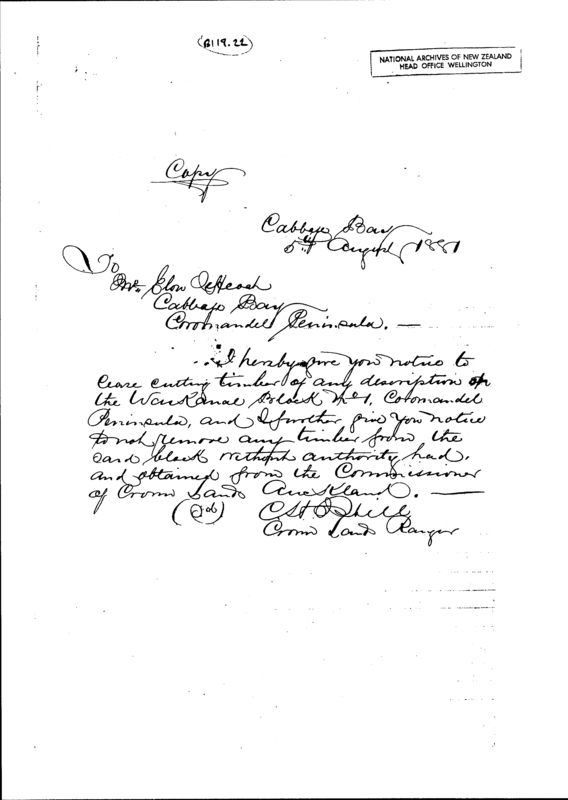 (B119.22)
NATIONAL ARCHIVES OF NEW ZEALAND
HEAD OFFICE WELLINGTON
Copy
Cabbage Bay
5th August 1881
To
Mr.
Cabbage Bay
Coromandel Peninsula. —
I hereby give you notice to
cease cutting timber of any description on
the Waikanae Block No 1, Coromandel
Peninsula, and I further give you notice
to not remove any timber from the
said block without authority had,
and obtained from the Commissioner
of Crown Lands Auckland. —
Crown Lands Ranger